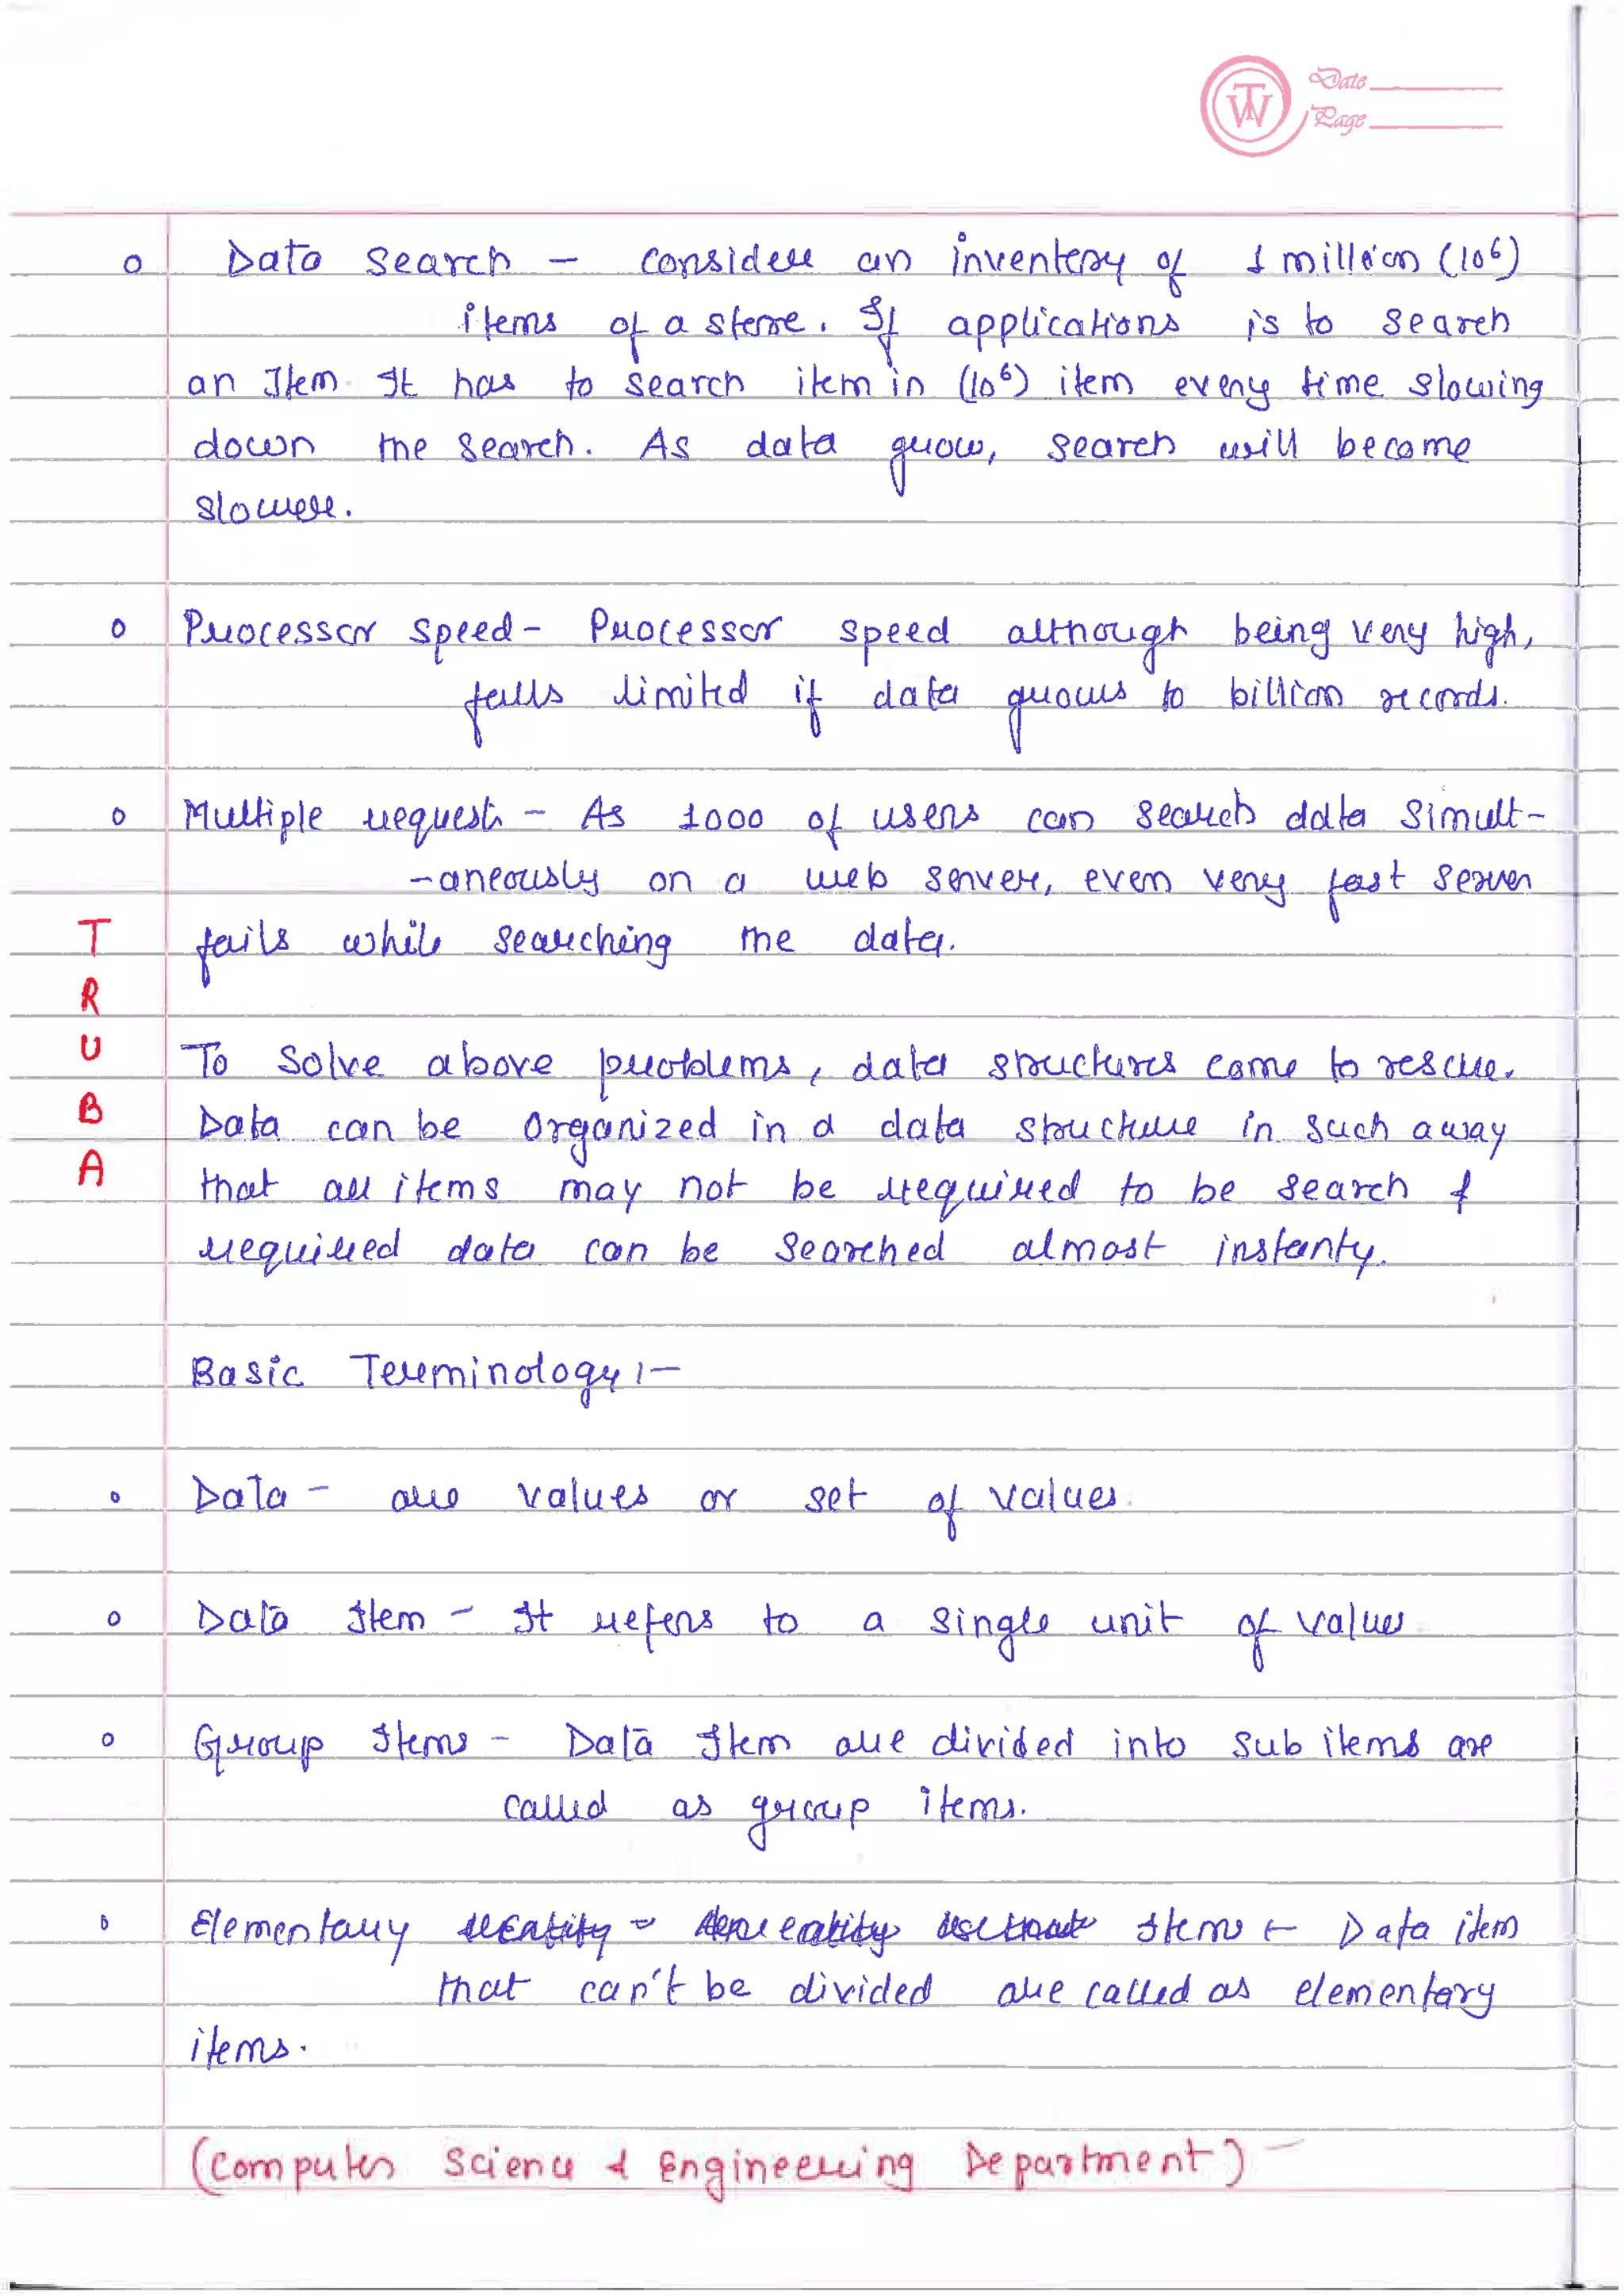 TW Date
Page
o Data search - consider an inventory of 1 million (10⁶)
items of a store. If applications is to search
an Item It has to search item in (10⁶) item every time slowing
down the search. As data grow, search will become
slower.
o Processor speed - Processor speed although being very high,
falls limited if data grows to billion records.
o Multiple requests - As 1000 of users can search data simult-
-aneously on a web server, even very fast server
fails while searching the data.
To Solve above problems, data structures came to rescue.
Data can be organized in a data structure in such a way
that all items may not be required to be search &
required data can be searched almost instanty.
TRUBA
Basic Terminology :-
o Data - are values or set of values
o Data Item - It refers to a single unit of values
o Group Items - Data Item are divided into sub items are
called as group items.
o Elementary Items - Data item
that can't be divided are called as elementary
items.
(Computer Science & Engineering Department)